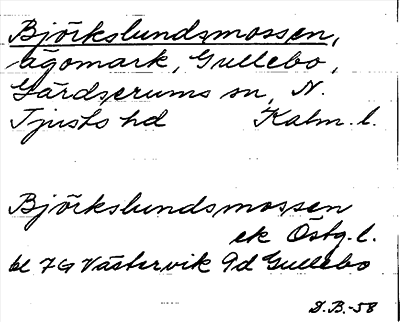 Björkslundsmossen,
ägomark, Gullebo,
Gärdserums sn, N.
Tjusts hd Kalm. l.
Björkslundsmossen
ek Östg. l.
bl 7G Västervik 9d Gullebo
D.B.-58